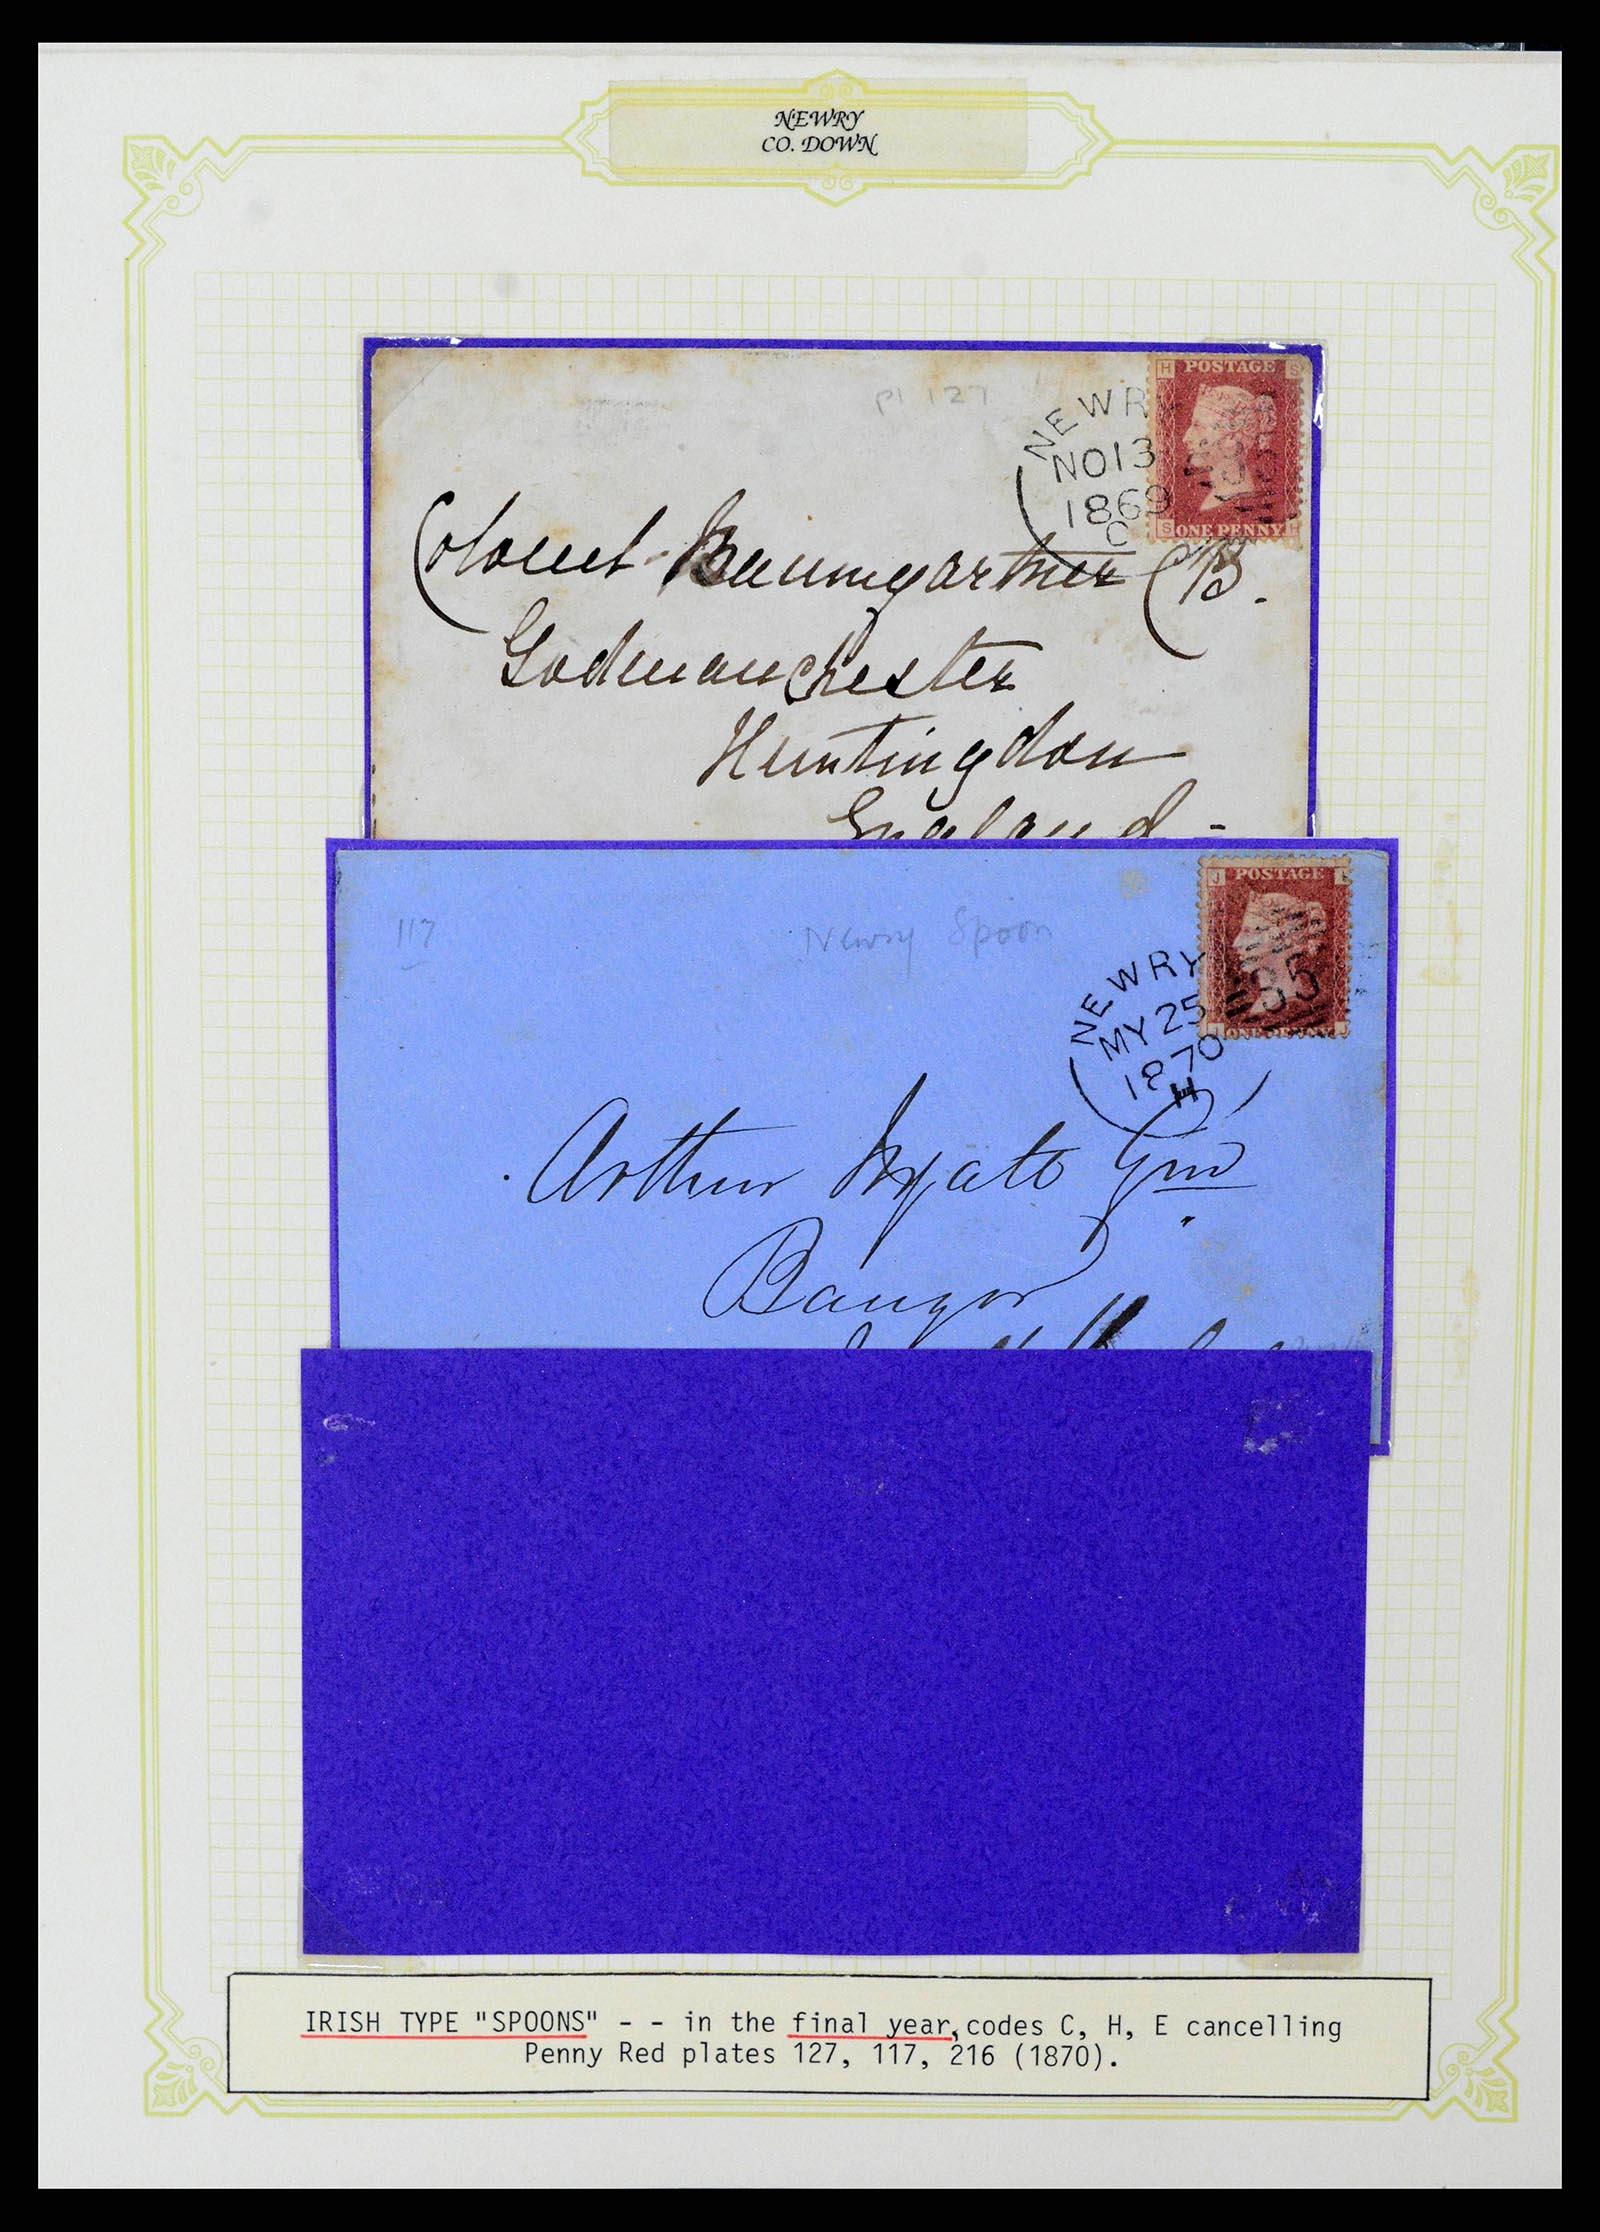 NEWRY
CO. DOWN
pl 127
H POSTAGE S
NEWR
NO 13
1869
C
S ONE PENNY H
Colonel Baumgartner CB.
Godmanchester
Huntingdon
England -
117
Newry Spoon
J POSTAGE
NEWRY
MY 25
1870
H
55
ONE PENNY J
Arthur
Bangor
IRISH TYPE "SPOONS" - - in the final year, codes C, H, E cancelling
Penny Red plates 127, 117, 216 (1870).